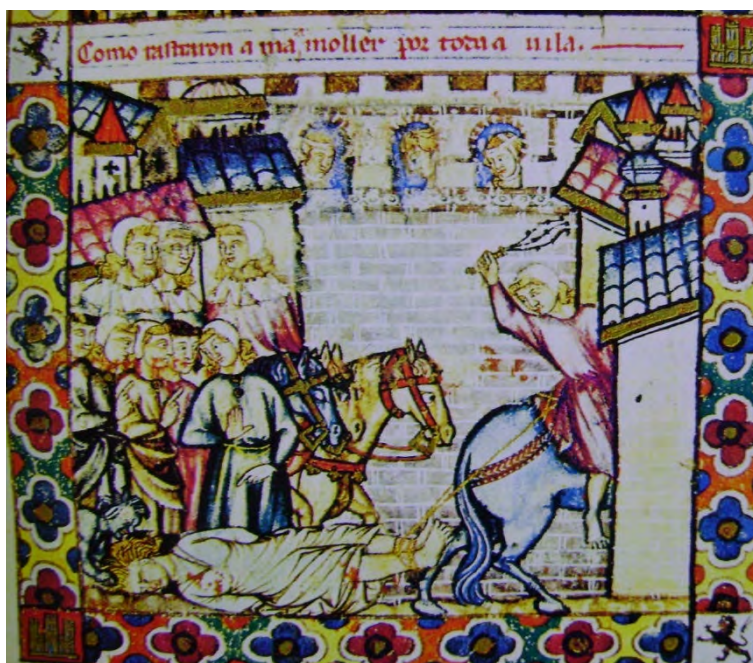 Como rastraron a maa moller por toda a uila.